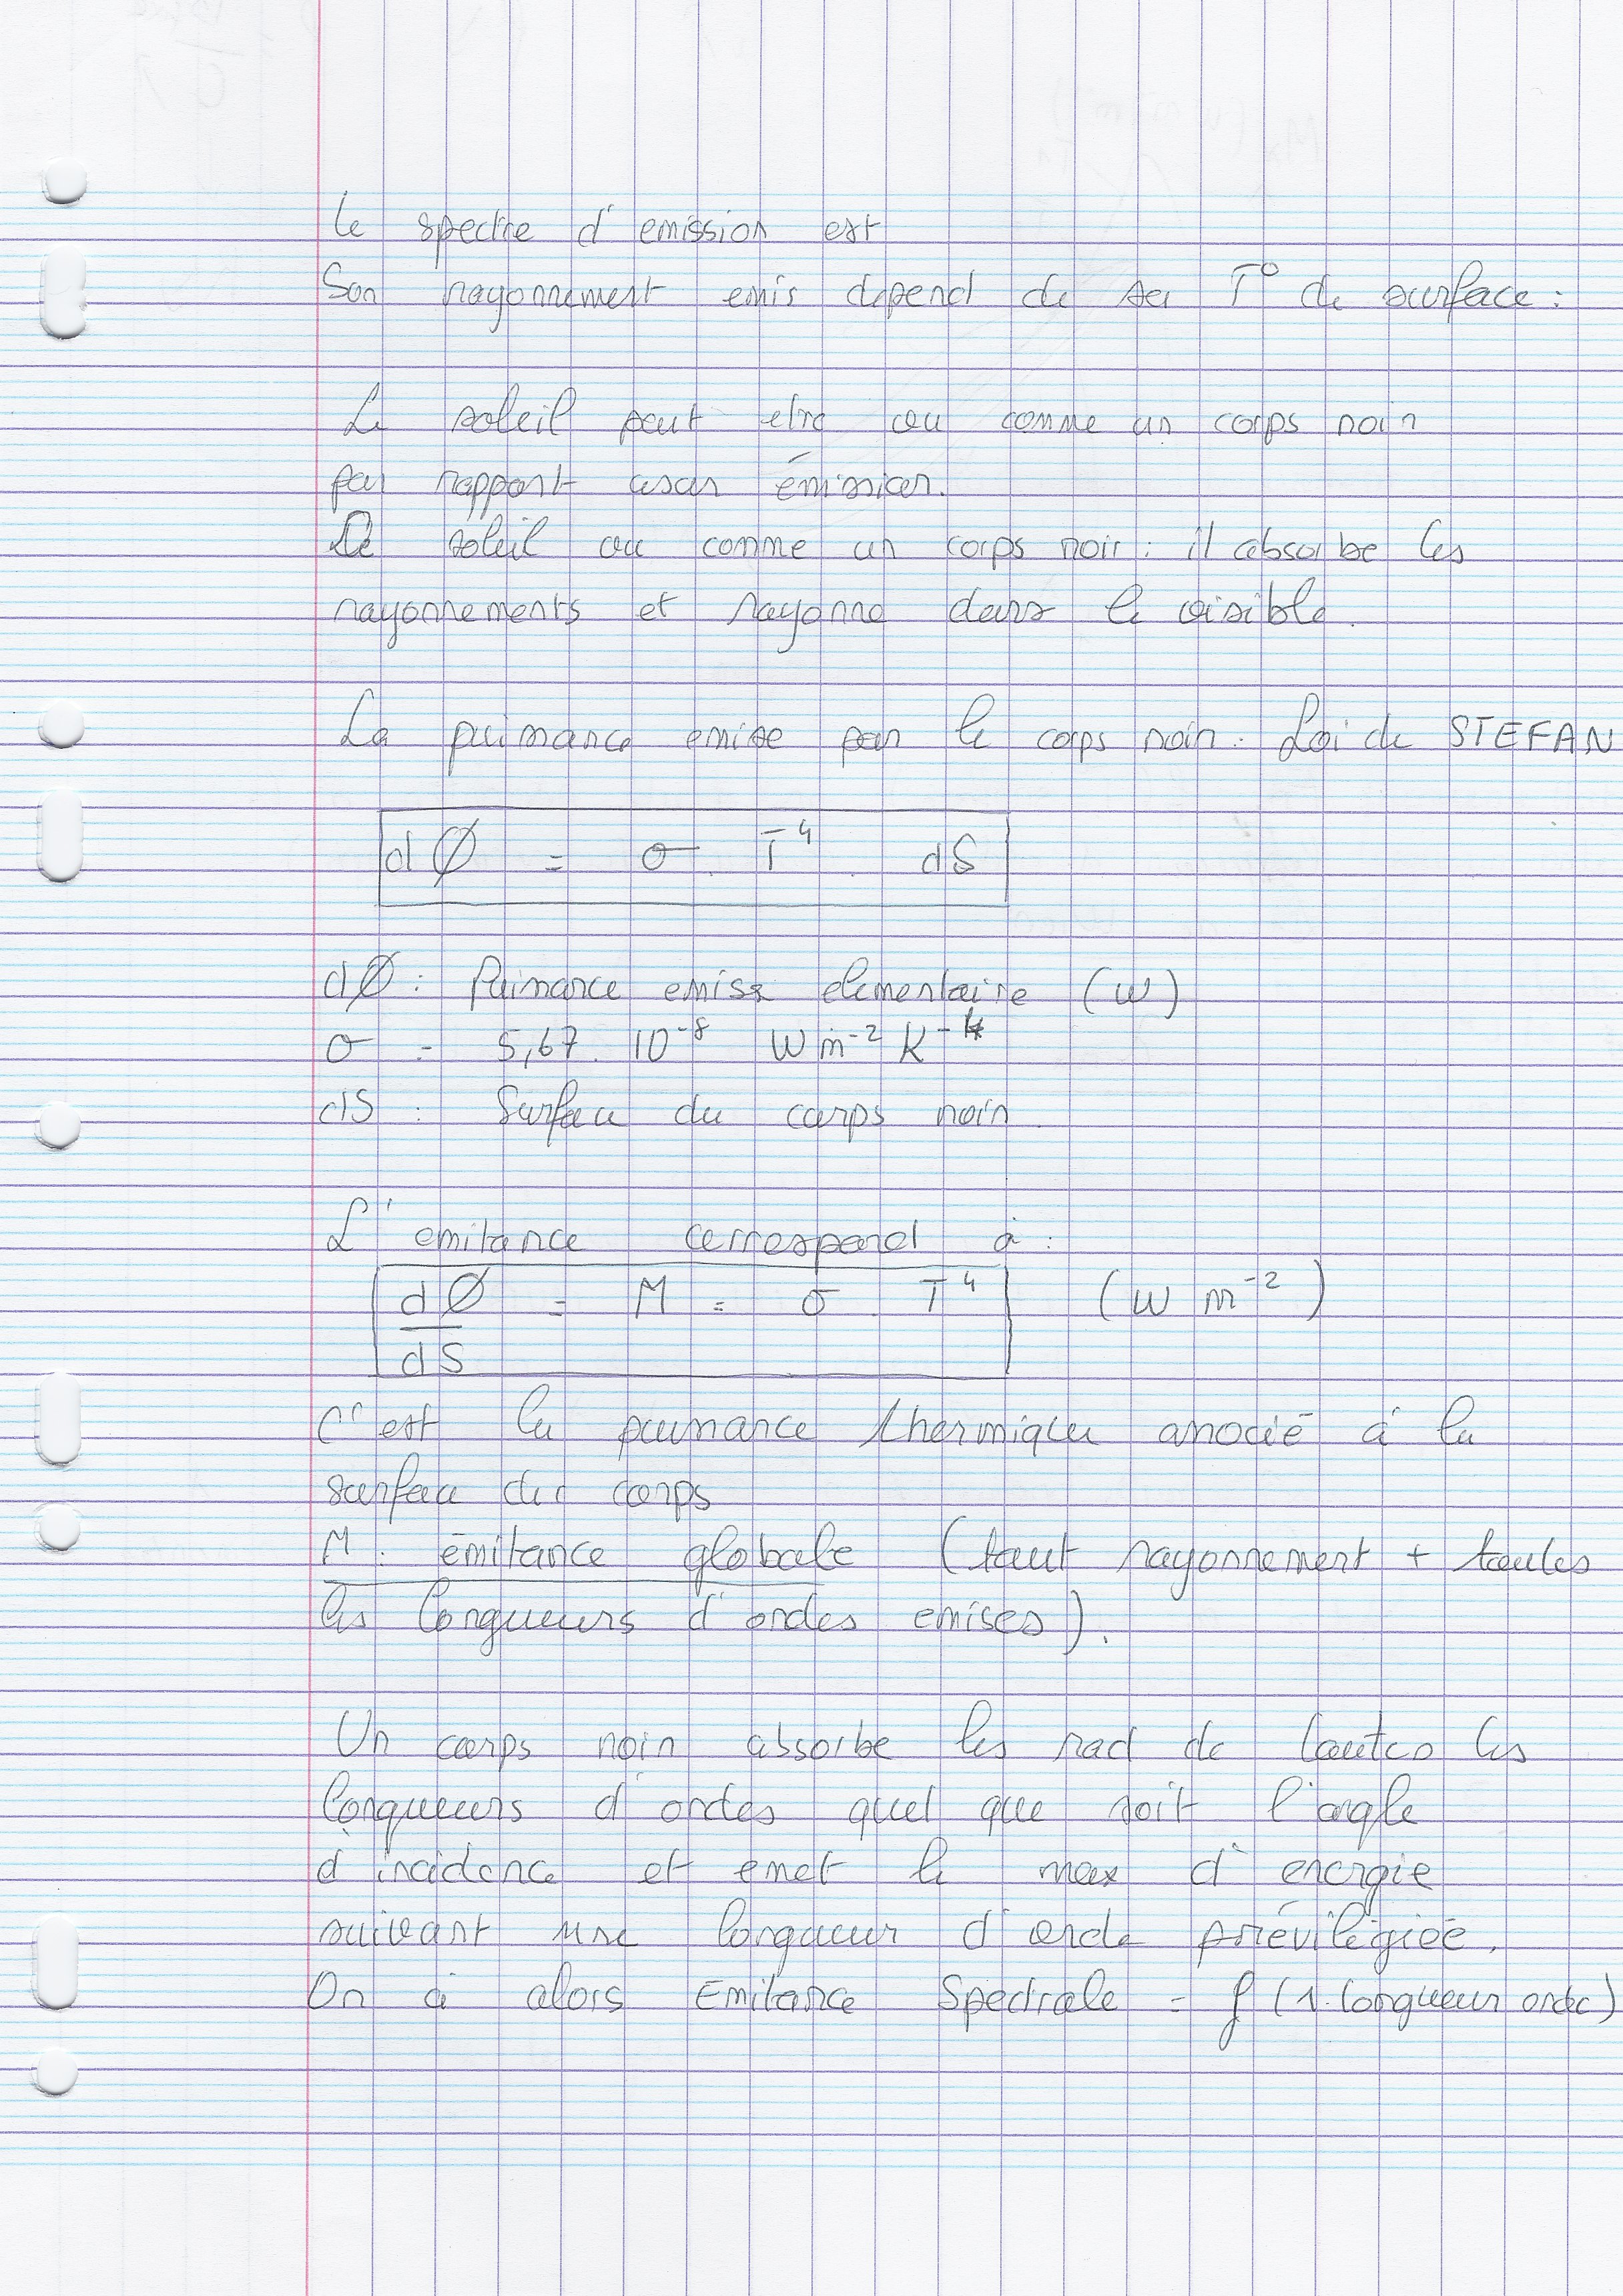 Le spectre d'emission est
Son rayonnement emis depend de sa T° de surface :
Le soleil peut etre vu comme un corps noir
par rapport a son émission.
Le soleil vu comme un corps noir : il absorbe les
rayonnements et rayonne dans le visible.
La puissance emise par le corps noir. Loi de STEFAN
dØ = σ . T⁴ . dS
dØ : Puissance emise elementaire (W)
σ = 5,67 . 10⁻⁸ W m⁻² K⁻⁴
dS : Surface du corps noir
L'emitance correspond à :
dØ/dS = M = σ . T⁴ (W m⁻²)
C'est la puissance thermique associé à la
surface du corps
M : émitance globale (tout rayonnement + toutes
les longueurs d'ondes emises).
Un corps noir absorbe les rad de toutes les
longueurs d'ondes quel que soit l'angle
d'incidence et emet le max d'energie
suivant une longueur d'onde prévilégiée.
On à alors Emitance Spectrale = f (1. longueur onde)